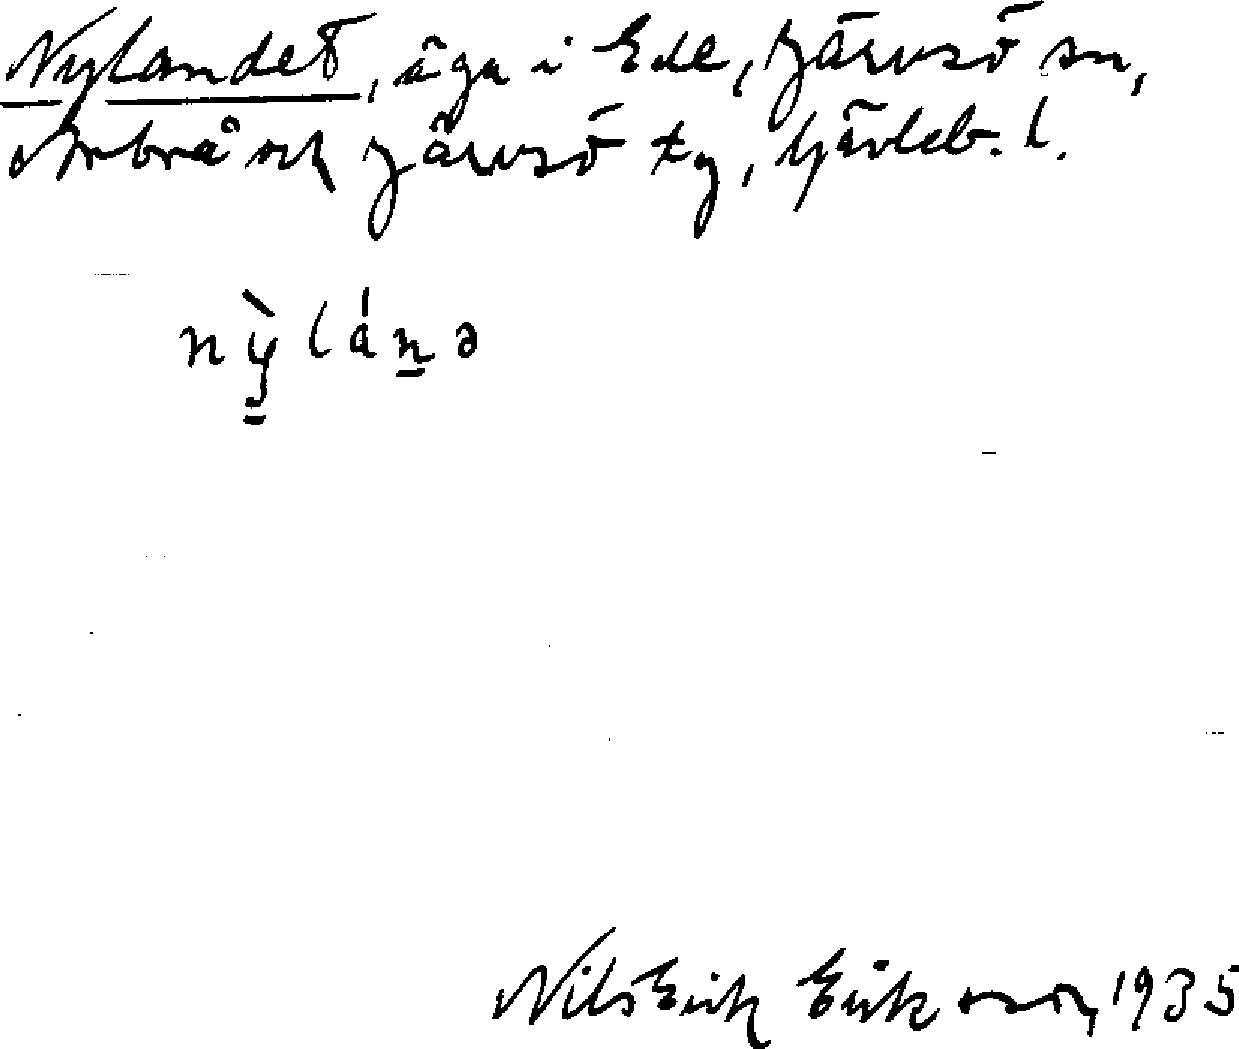 Nylandet, äga i Ede, Järvsö sn,
Arbrå och Järvsö tg, Gävleb. l.
nỳláṉə
Nils Erik Eriksson, 1935